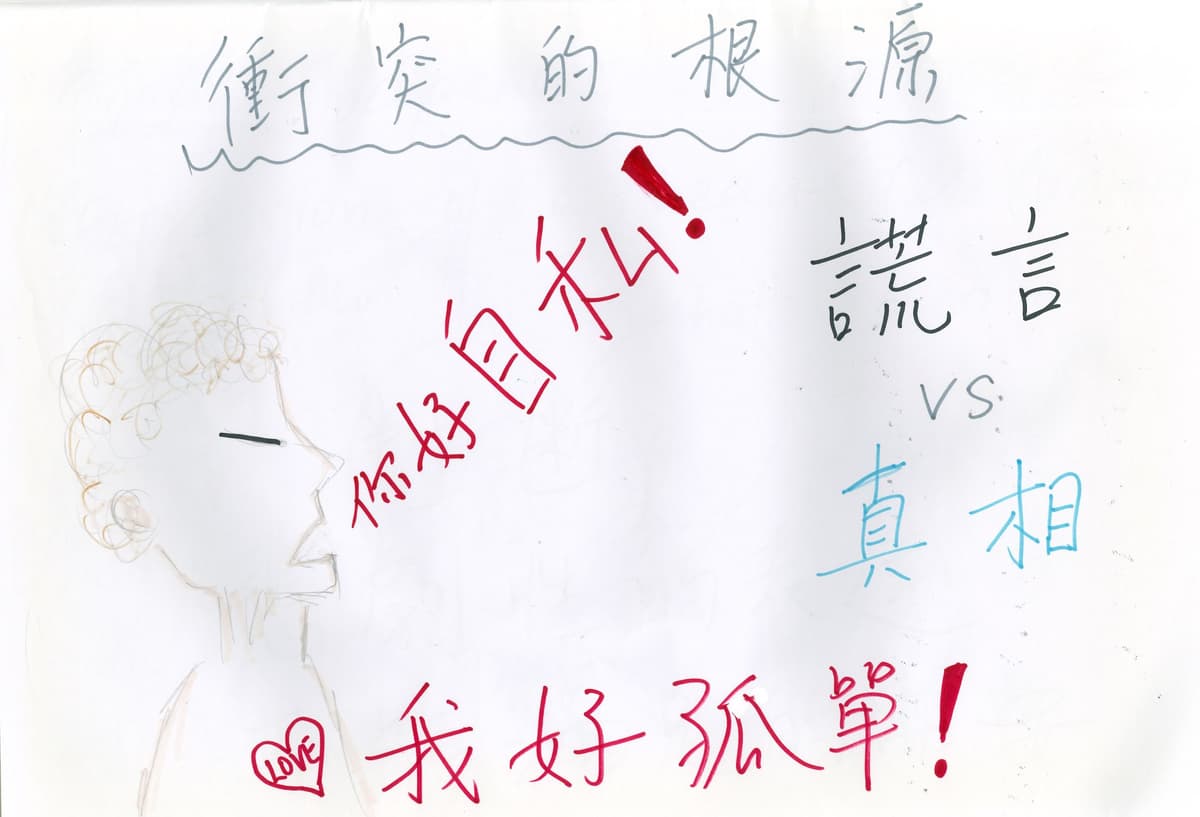 衝突的根源
你好自私！
謊言
vs.
真相
LOVE 我好孤單！